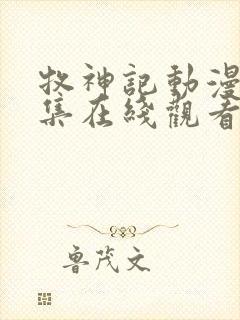 牧神記動漫
集在綫觀看
魯茂文